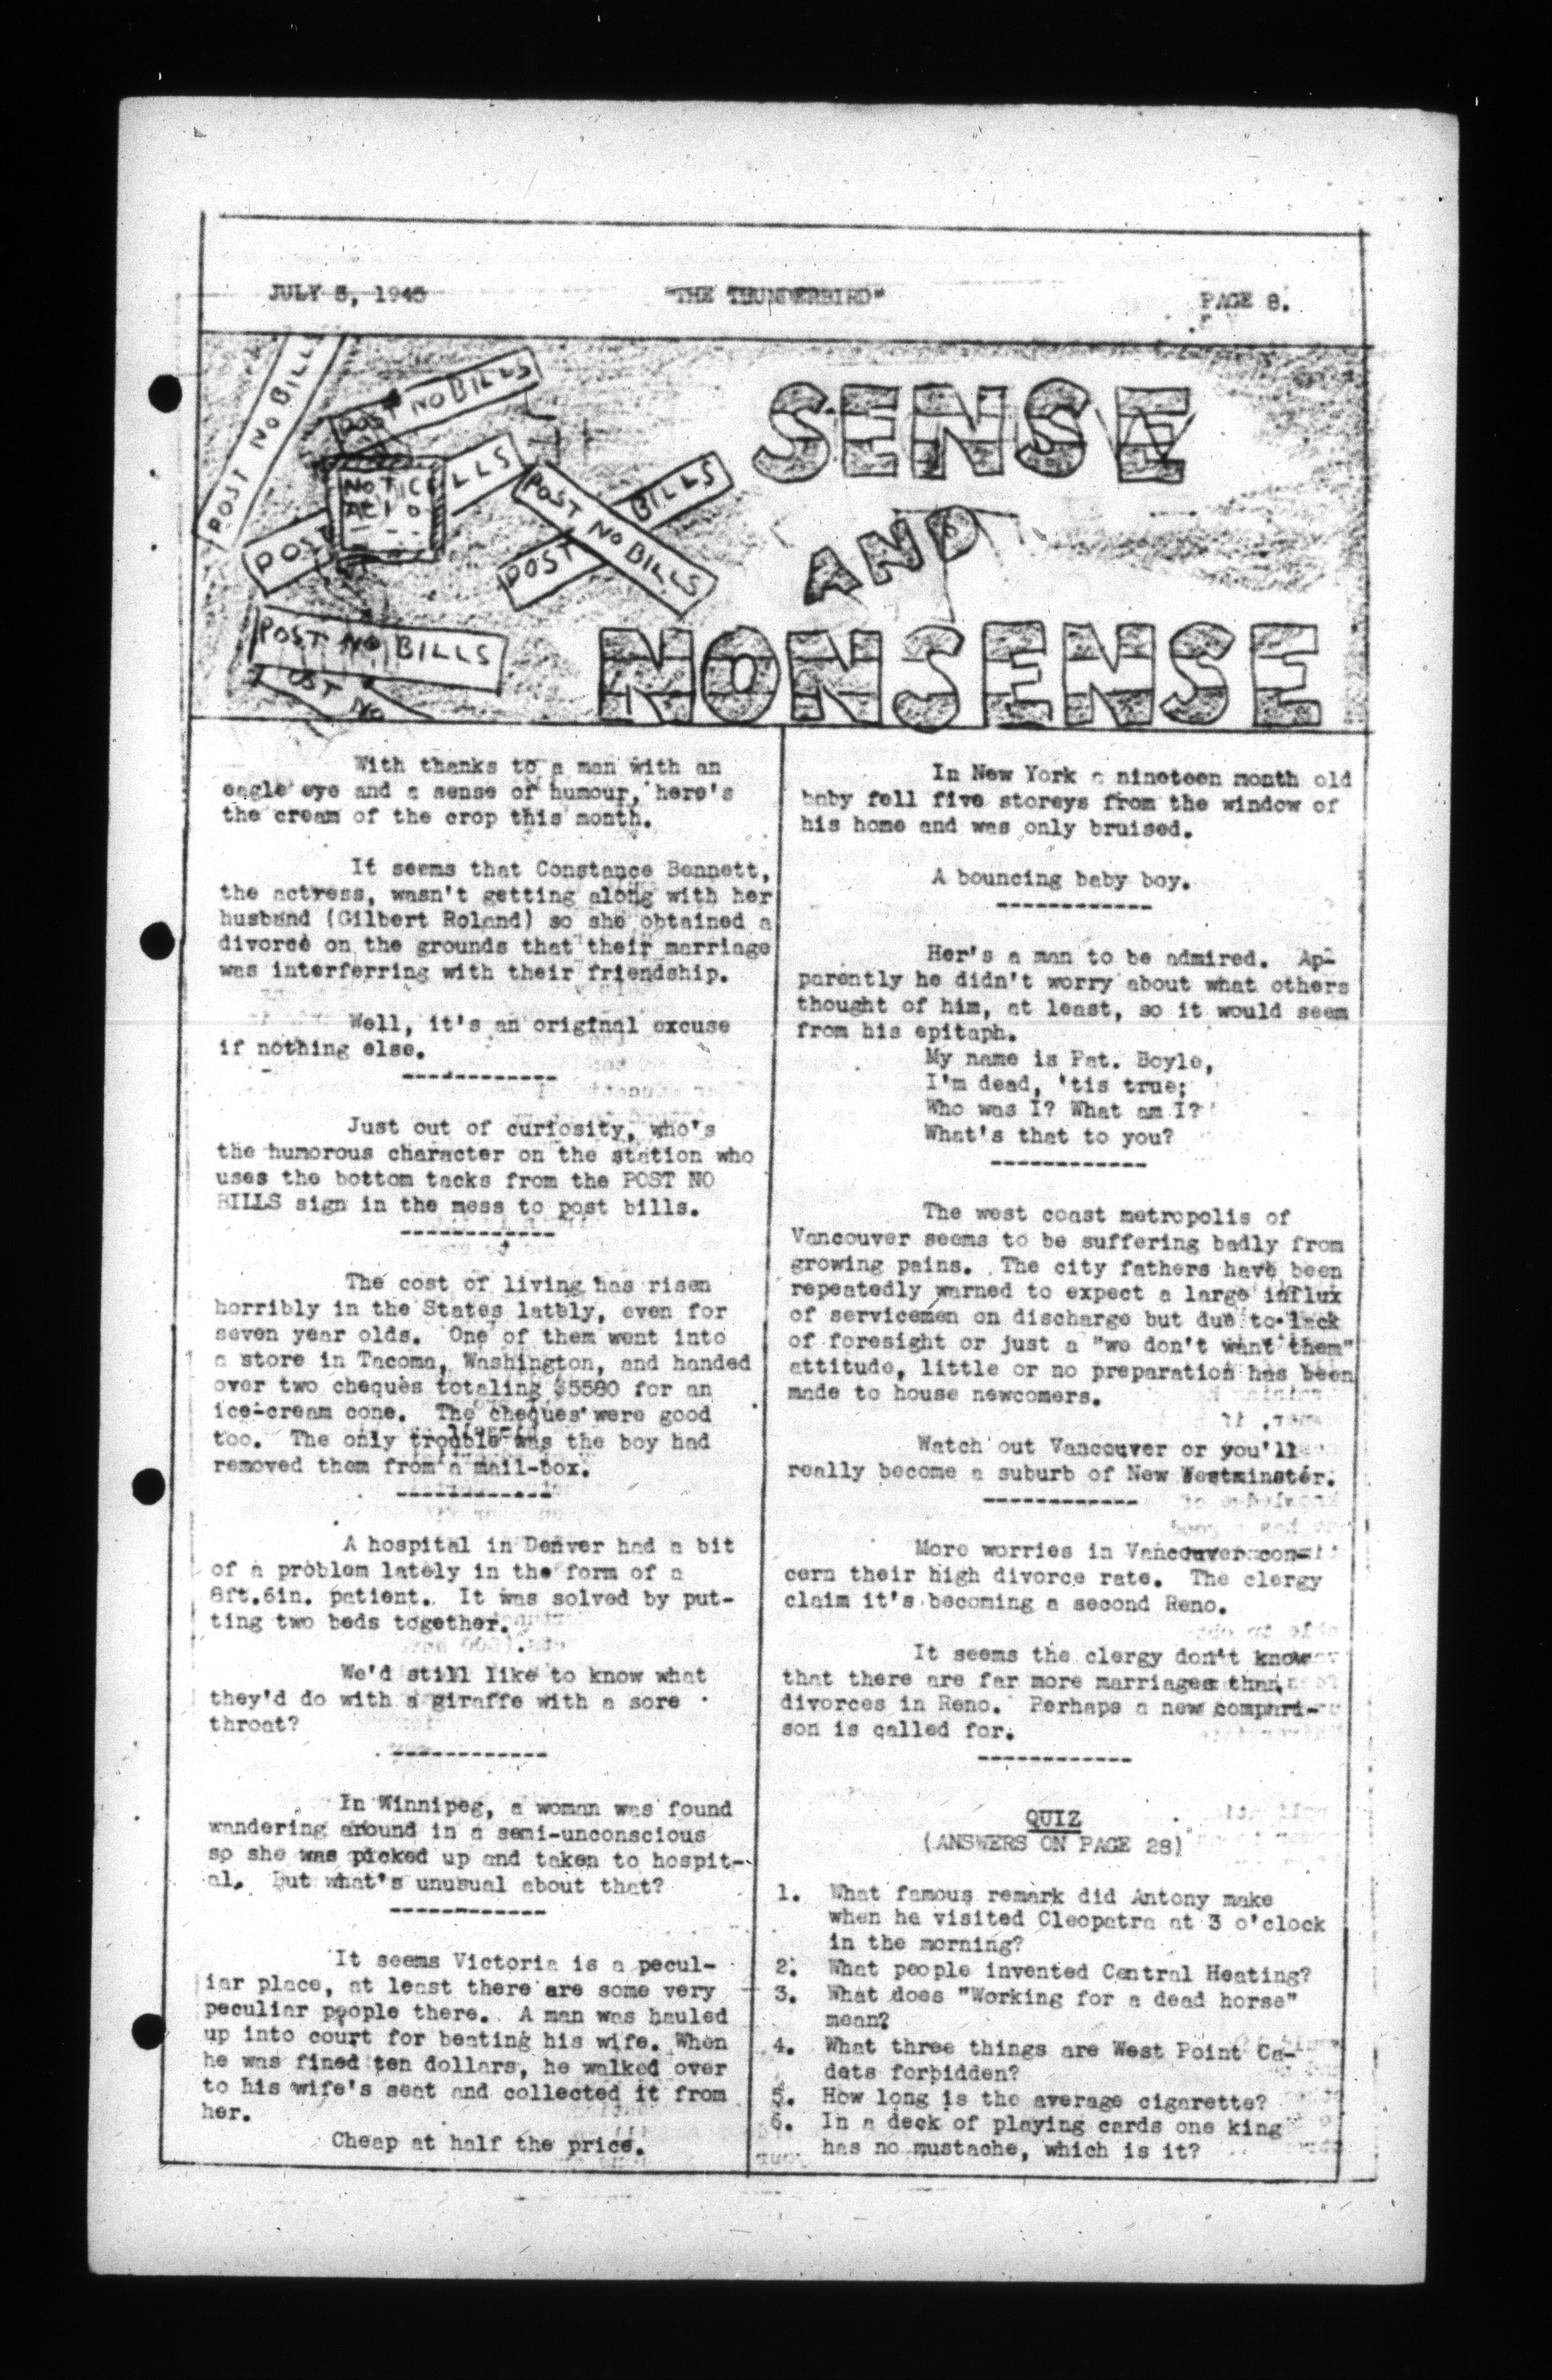 JULY 5, 1945
"THE THUNDERBIRD"
PAGE 8.
POST NO BILLS
POST NO BILLS
NOTICE
POST
LLS
POST NO BILLS
POST
BILLS
POST NO BILLS
POST NO
SENSE
AND
NONSENSE
With thanks to a man with an
eagle eye and a sense of humour, here's
the cream of the crop this month.
It seems that Constance Bennett,
the actress, wasn't getting along with her
husband (Gilbert Roland) so she obtained a
divorce on the grounds that their marriage
was interferring with their friendship.
Well, it's an original excuse
if nothing else.
------------
Just out of curiosity, who's
the humorous character on the station who
uses the bottom tacks from the POST NO
BILLS sign in the mess to post bills.
------------
The cost of living has risen
horribly in the States lately, even for
seven year olds. One of them went into
a store in Tacoma, Washington, and handed
over two cheques totaling $5580 for an
ice-cream cone. The cheques were good
too. The only trouble was the boy had
removed them from a mail-box.
------------
A hospital in Denver had a bit
of a problem lately in the form of a
8ft.6in. patient. It was solved by put-
ting two beds together.
We'd still like to know what
they'd do with a giraffe with a sore
throat?
------------
In Winnipeg, a woman was found
wandering around in a semi-unconscious
so she was picked up and taken to hospit-
al. But what's unusual about that?
------------
It seems Victoria is a pecul-
iar place, at least there are some very
peculiar people there. A man was hauled
up into court for beating his wife. When
he was fined ten dollars, he walked over
to his wife's seat and collected it from
her.
Cheap at half the price.
In New York a nineteen month old
baby fell five storeys from the window of
his home and was only bruised.
A bouncing baby boy.
------------
Her's a man to be admired. Ap-
parently he didn't worry about what others
thought of him, at least, so it would seem
from his epitaph.
My name is Pat. Boyle,
I'm dead, 'tis true;
Who was I? What am I?
What's that to you?
------------
The west coast metropolis of
Vancouver seems to be suffering badly from
growing pains. The city fathers have been
repeatedly warned to expect a large influx
of servicemen on discharge but due to lack
of foresight or just a "we don't want them"
attitude, little or no preparation has been
made to house newcomers.
Watch out Vancouver or you'll
really become a suburb of New Westminster.
------------
More worries in Vancouver con-
cern their high divorce rate. The clergy
claim it's becoming a second Reno.
It seems the clergy don't know
that there are far more marriages than
divorces in Reno. Perhaps a new compari-
son is called for.
------------
QUIZ
(ANSWERS ON PAGE 28)
1. What famous remark did Antony make
when he visited Cleopatra at 3 o'clock
in the morning?
2. What people invented Central Heating?
3. What does "Working for a dead horse"
mean?
4. What three things are West Point Ca-
dets forbidden?
5. How long is the average cigarette?
6. In a deck of playing cards one king
has no mustache, which is it?